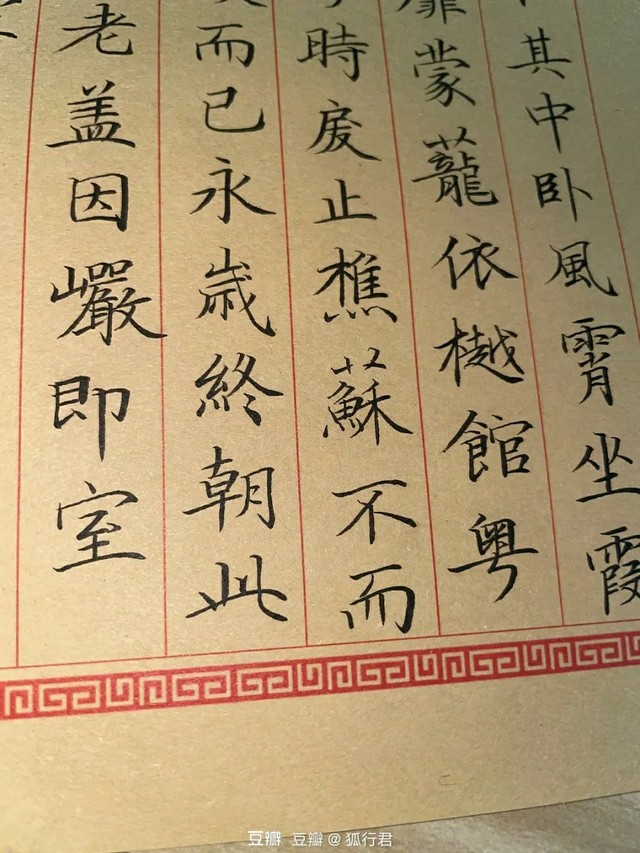 其中卧風霄坐霞
蒙蘢依樾館粤
時戾止樵蘇不而
而已永歲終朝此
老盖因巖即室
豆瓣 豆瓣@狐行君